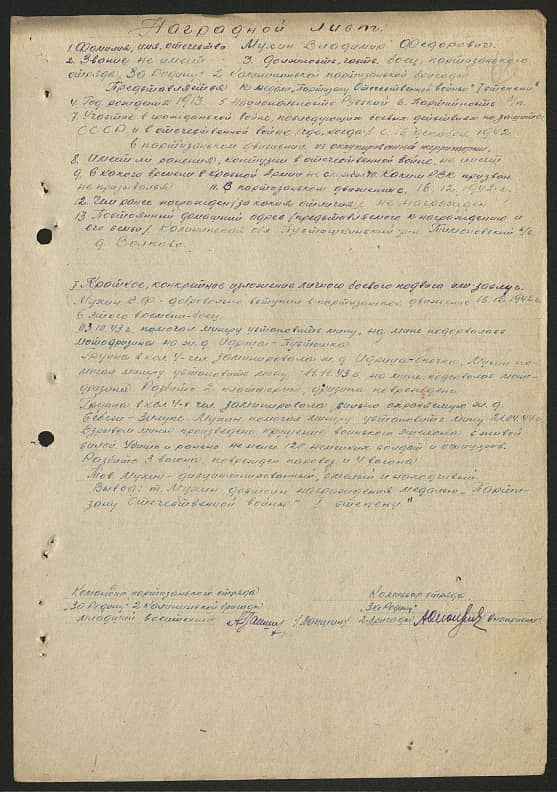 Наградной лист.
1 Фамилия, имя, отчество Мухин Владимир Федорович.
2. Звание не имеет 3. Должность, часть боец партизанского
отряда "За Родину" 2 Калининской партизанской бригады
Представляется к медали "Партизану Отечественной войны" степени"
4. Год рождения 1913. 5 Национальность Русский 6. Партийность
7. Участие в гражданской войне, последующих боевых действиях по защите
СССР и в отечественной войне (где, когда) с 16 декабря 1942
в партизанском движении на оккупированной территории.
8. Имеет ли ранения, контузии в отечественной войне не имеет
9. С какого времени в красной армии не служил 10. Каким РВК призван
не призывался 11. В партизанском движении с. 16. 12. 1942 г.
12. Чем ранее награжден (за какие отличия) не награжден
13. Постоянный домашний адрес (представляемого к награждению и
его семьи) Калининская обл. Пустошкинский р-н. Тимоновский с/с
д. Волково.
I Краткое, конкретное изложение личного боевого подвига или заслуг.
Мухин В.Ф. добровольно вступил в партизанское движение 16.12.1942 г.
С этого времени боец.
03.10.43 г. помогал минеру установить мину, на мине подорвалась
мотодрезина на ж.д Идрица-Пустошка.
Группа в кол. 4-чел. заминировала ж.д Идрица- Мухин по-
могал минеру установить мину. 43 г. на мине подорвалась мото-
дрезина. Разбито 2 платформы, дрезина повреждена.
Группа в кол 4-х чел. заминировала сильно охраняемую ж.д.
Себеж- Мухин помогал минеру установить мину 04.44 г.
Взрывом мины произведено крушение воинского эшелона с живой
силой. Убито и ранено не менее 120 немецких солдат и офицеров.
Разбито 3 вагона, поврежден паровоз и 4 вагона.
Тов Мухин - дисциплинированный, смелый и находчивый.
Вывод: т. Мухин достоин награждения медалью "Парти-
зану Отечественной войны" степени"
Командир партизанского отряда Комиссар отряда
"За Родину" 2 Калининской бригады "За Родину"
младший 2 бригады